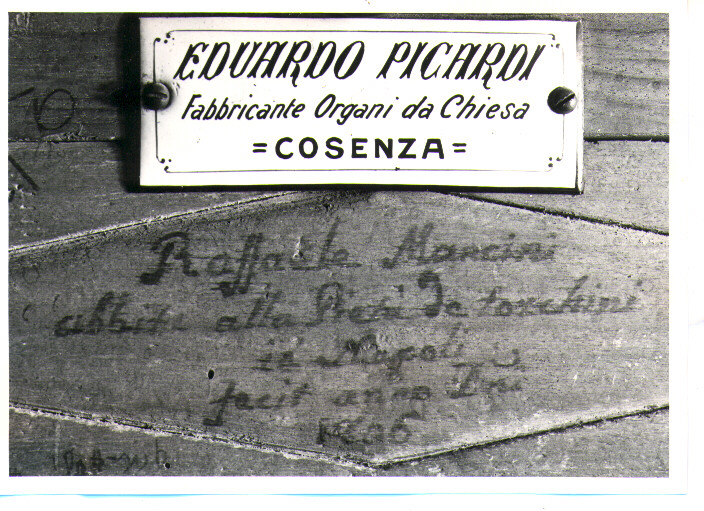 EDUARDO PICARDI
Fabbricante Organi da Chiesa
=COSENZA=
Raffaele Mancini
alla Pietà de torchini
Napoli
fecit anno Dni